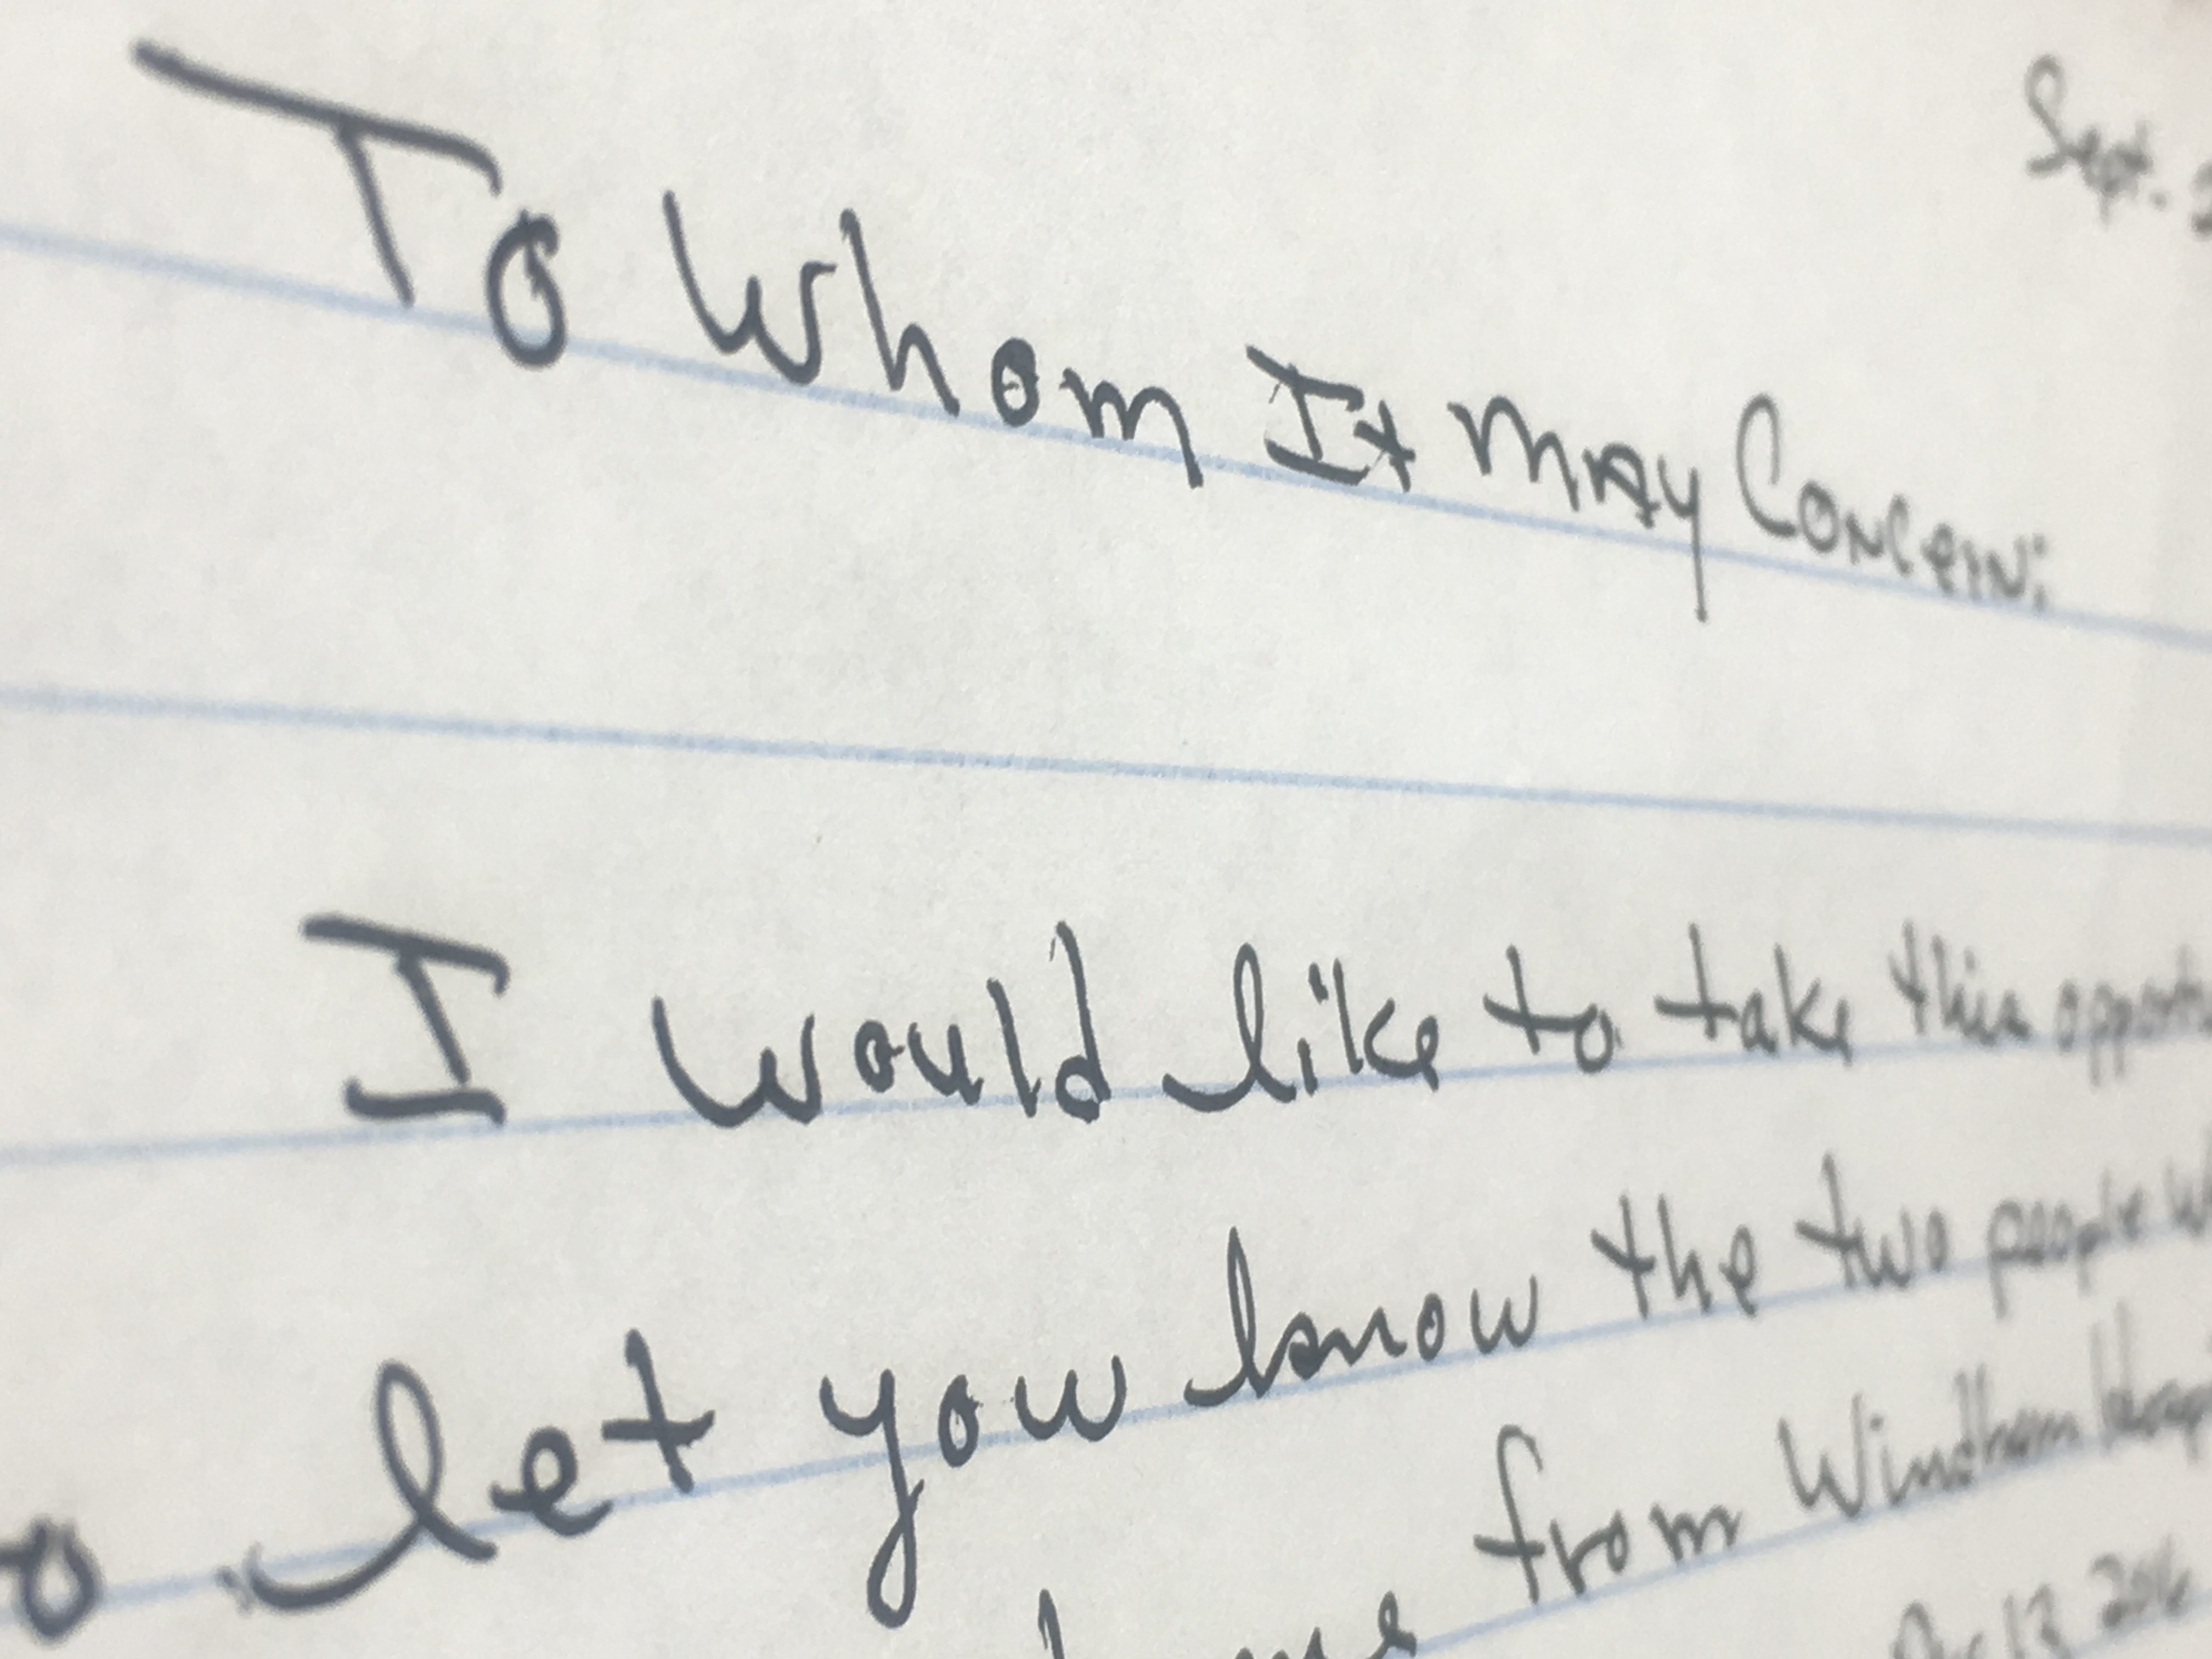 Sept.
To Whom It May Concern:
I would like to take this
let you know the two people
from Windham
13, 2016